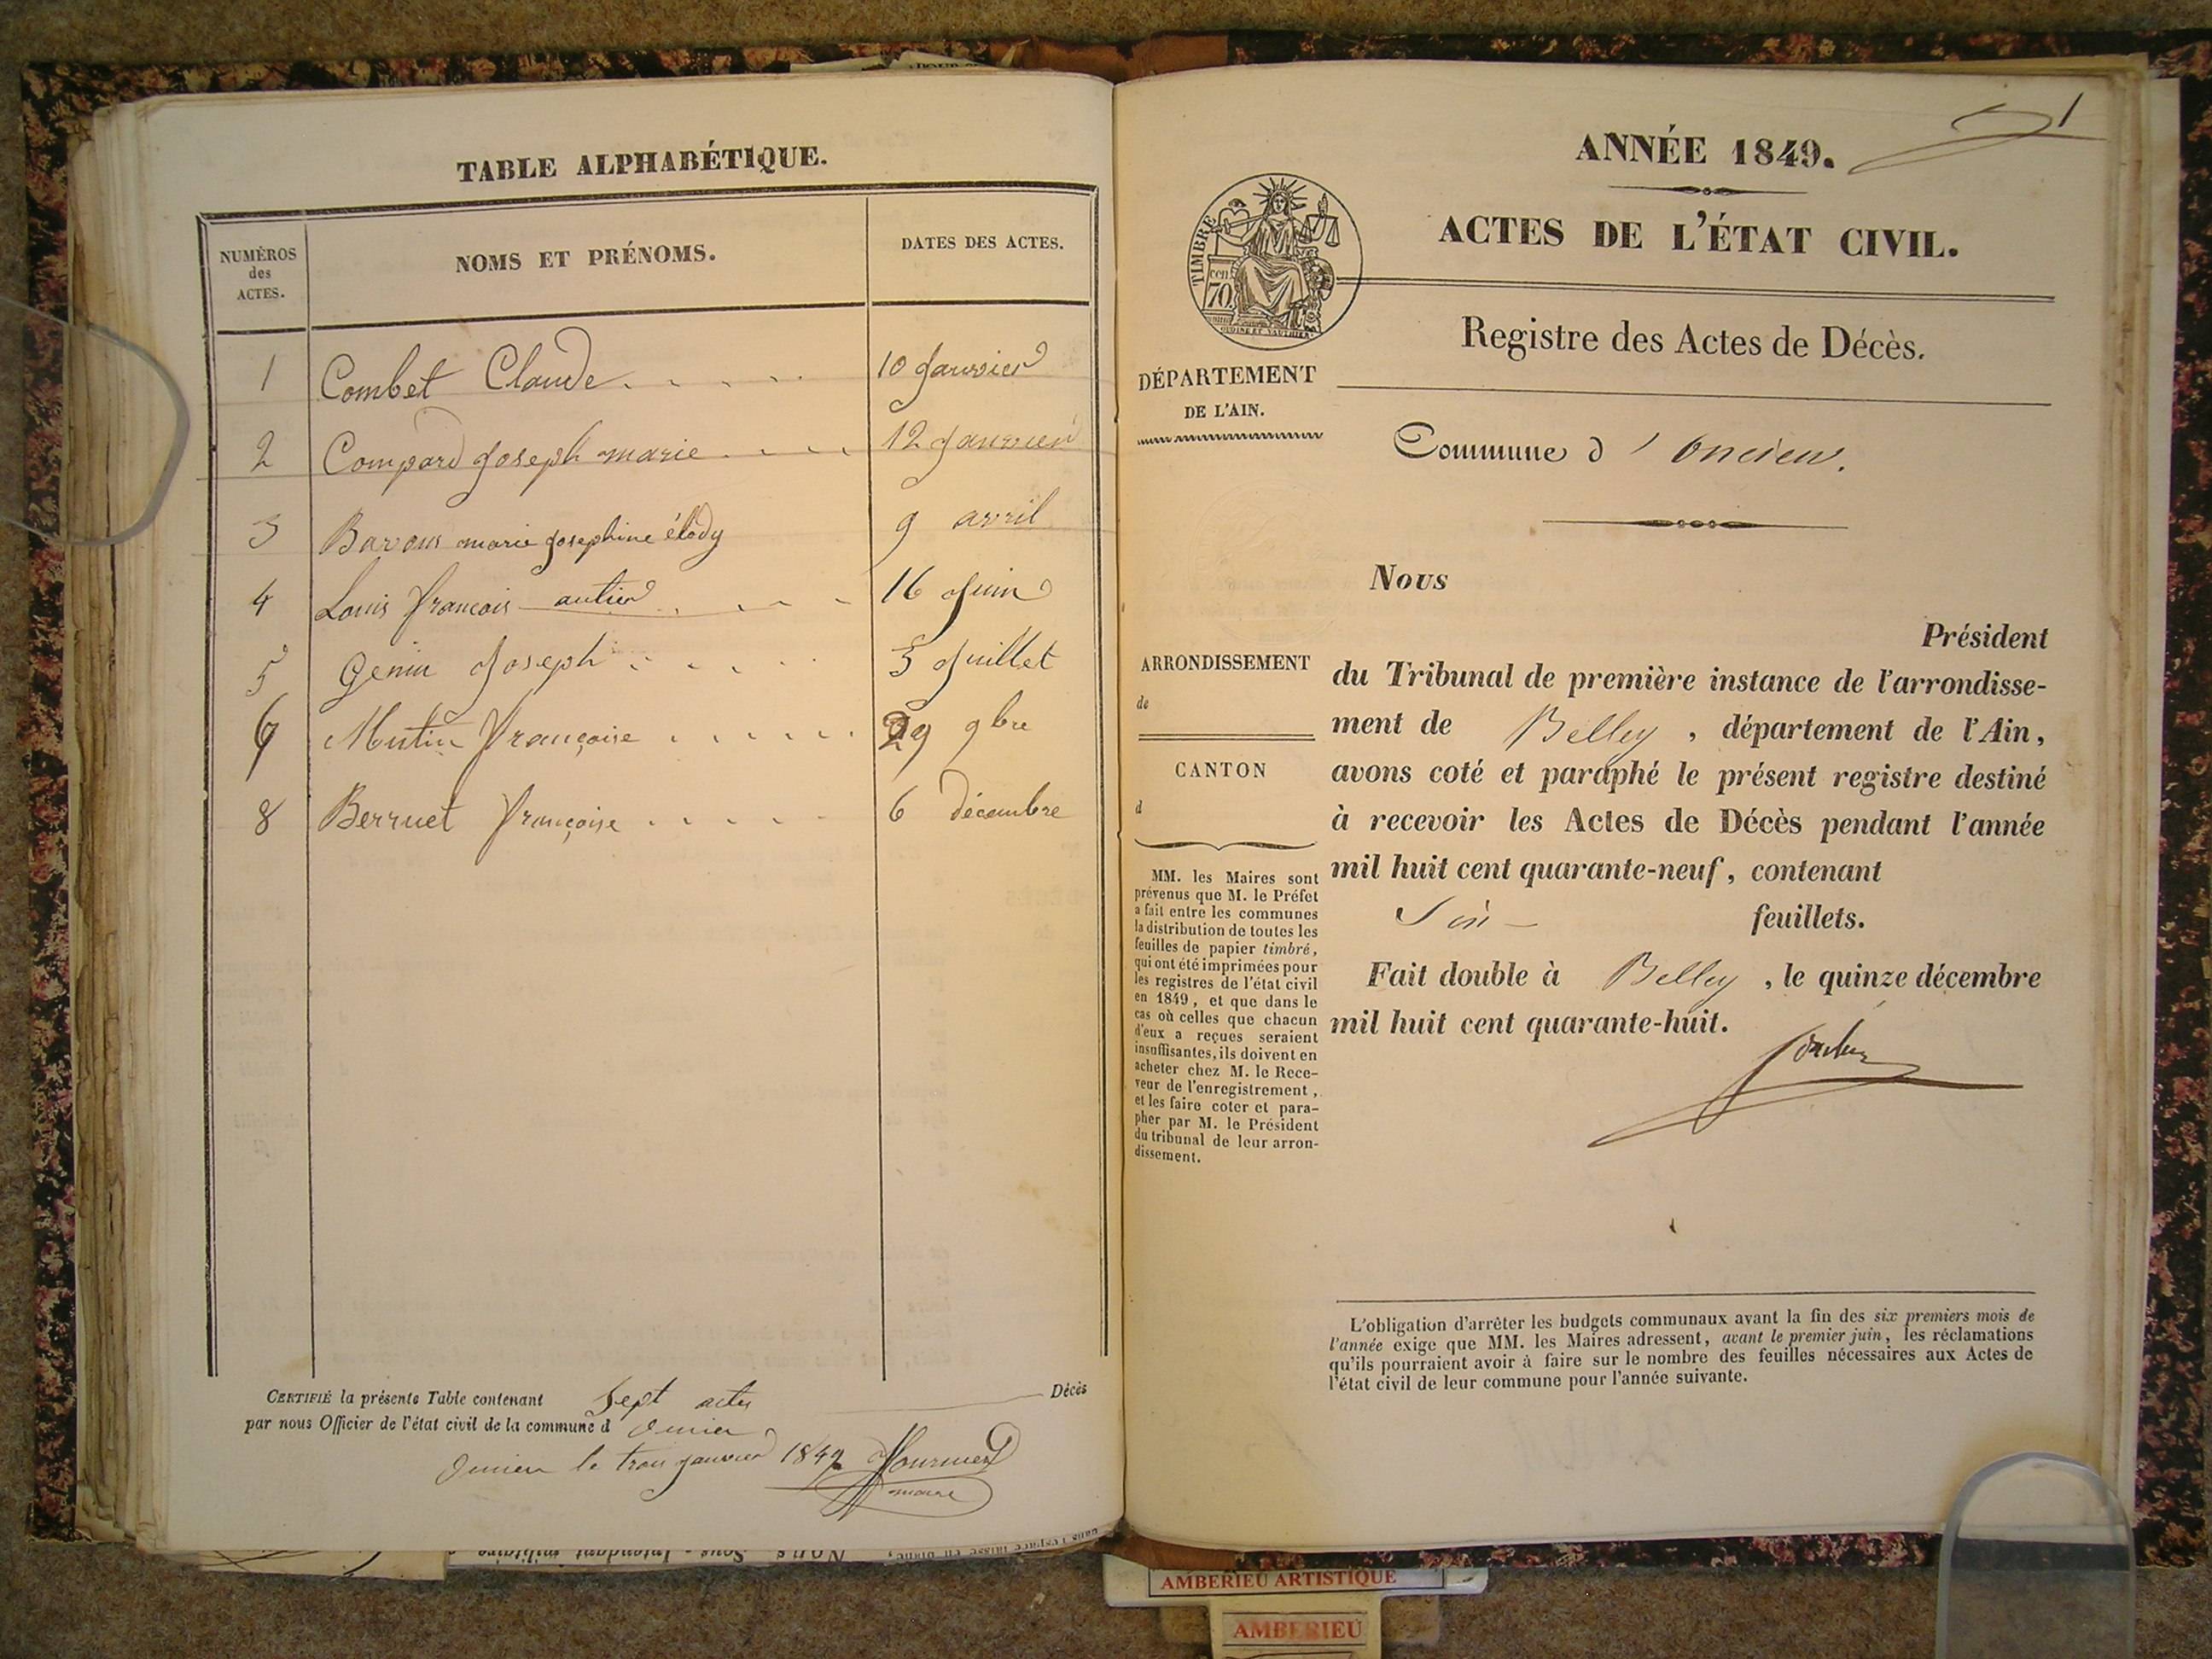 TABLE ALPHABÉTIQUE.
NUMÉROS
des
ACTES.
NOMS ET PRÉNOMS.
DATES DES ACTES.
1 Combet Claude 10 Janvier
2 Compard Joseph marie 12 Janvier
3 Bavoux marie Josephine élody 9 avril
4 Louis francois autier 16 Juin
5 Genin Joseph 5 Juillet
6 Mutin françoise 29 9bre
8 Berruet françoise 6 décembre
CERTIFIÉ la présente Table contenant Sept actes Décès
par nous Officier de l'état civil de la commune d Oncieu
Oncieu le trois janvier 1849
maire
1
ANNÉE 1849.
ACTES DE L'ÉTAT CIVIL.
TIMBRE
cen
70.
Registre des Actes de Décès.
DÉPARTEMENT
DE L'AIN.
Commune d'Oncieu.
Nous
Président
du Tribunal de première instance de l'arrondisse-
ment de Belley, département de l'Ain,
avons coté et paraphé le présent registre destiné
à recevoir les Actes de Décès pendant l'année
mil huit cent quarante-neuf, contenant
Six feuillets.
Fait double à Belley, le quinze décembre
mil huit cent quarante-huit.
ARRONDISSEMENT
de
CANTON
d
MM. les Maires sont
prévenus que M. le Préfet
a fait entre les communes
la distribution de toutes les
feuilles de papier timbré,
qui ont été imprimées pour
les registres de l'état civil
en 1849, et que dans le
cas où celles que chacun
d'eux a reçues seraient
insuffisantes, ils doivent en
acheter chez M. le Rece-
veur de l'enregistrement,
et les faire coter et para-
pher par M. le Président
du tribunal de leur arron-
dissement.
L'obligation d'arrêter les budgets communaux avant la fin des six premiers mois de
l'année exige que MM. les Maires adressent, avant le premier juin, les réclamations
qu'ils pourraient avoir à faire sur le nombre des feuilles nécessaires aux Actes de
l'état civil de leur commune pour l'année suivante.
AMBERIEU ARTISTIQUE
AMBERIEU